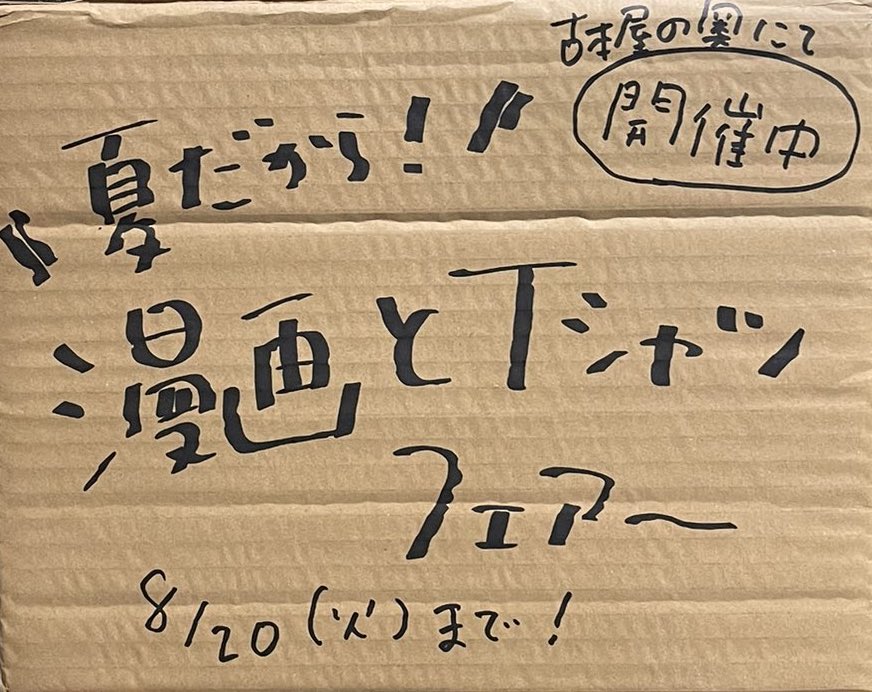 古本屋の奥にて
開催中
"夏だから!"
漫画とTシャツ
フェアー
8/20(火)まで!